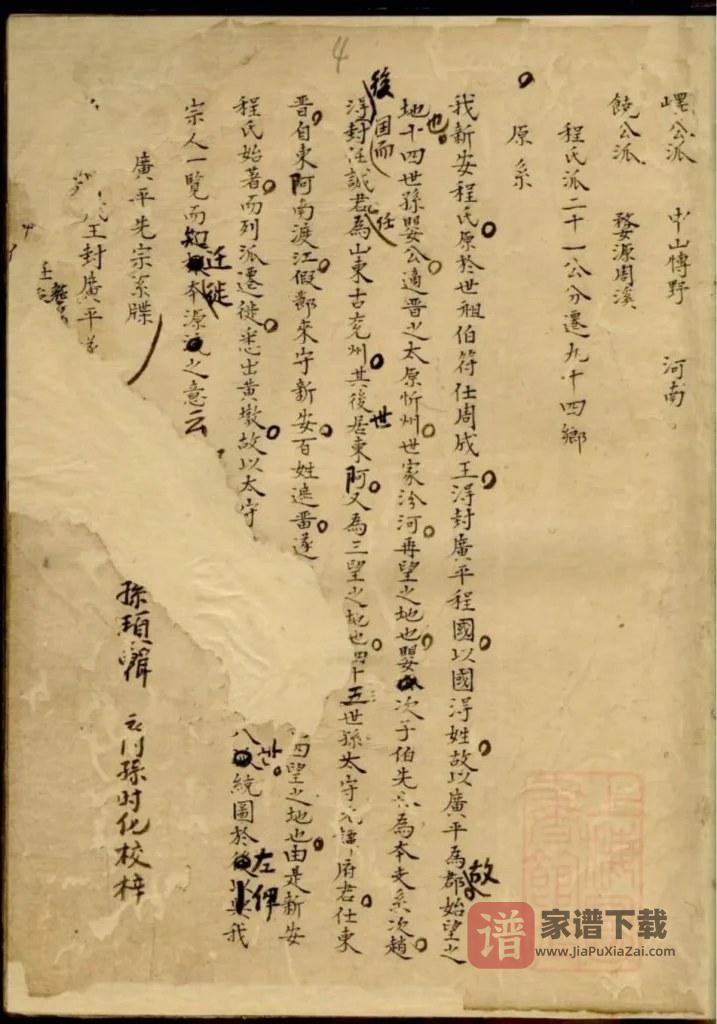 4
嶧公派 中山博野 河南
饒公派 婺源周溪
程氏派二十一公分遷九十四鄉
原系
我新安程氏原於世祖伯符仕周成王得封廣平程國以國得姓故以廣平為郡始望之
故
地十四世孫嬰公適晋之太原忻州世家汾河再望之地也嬰次子伯先為本支系次趙
也
後国而
得封汪誠君為山東古兗州其後居東阿又為三望之地也四十五世孫太守元譚府君仕東
任
世
晋自東阿南渡江假郡來守新安百姓遮畱遂
四望之地也由是新安
程氏始著而列派遷徙悉出黄墩故以太守
八 統圖於
左俾
我
宗人一覽而知本源流之意云
迁徙
廣平先宗系牒
王封廣平
孫項輯
孫時化校梓
谱 家谱下载
www.JiaPuXiaZai.com